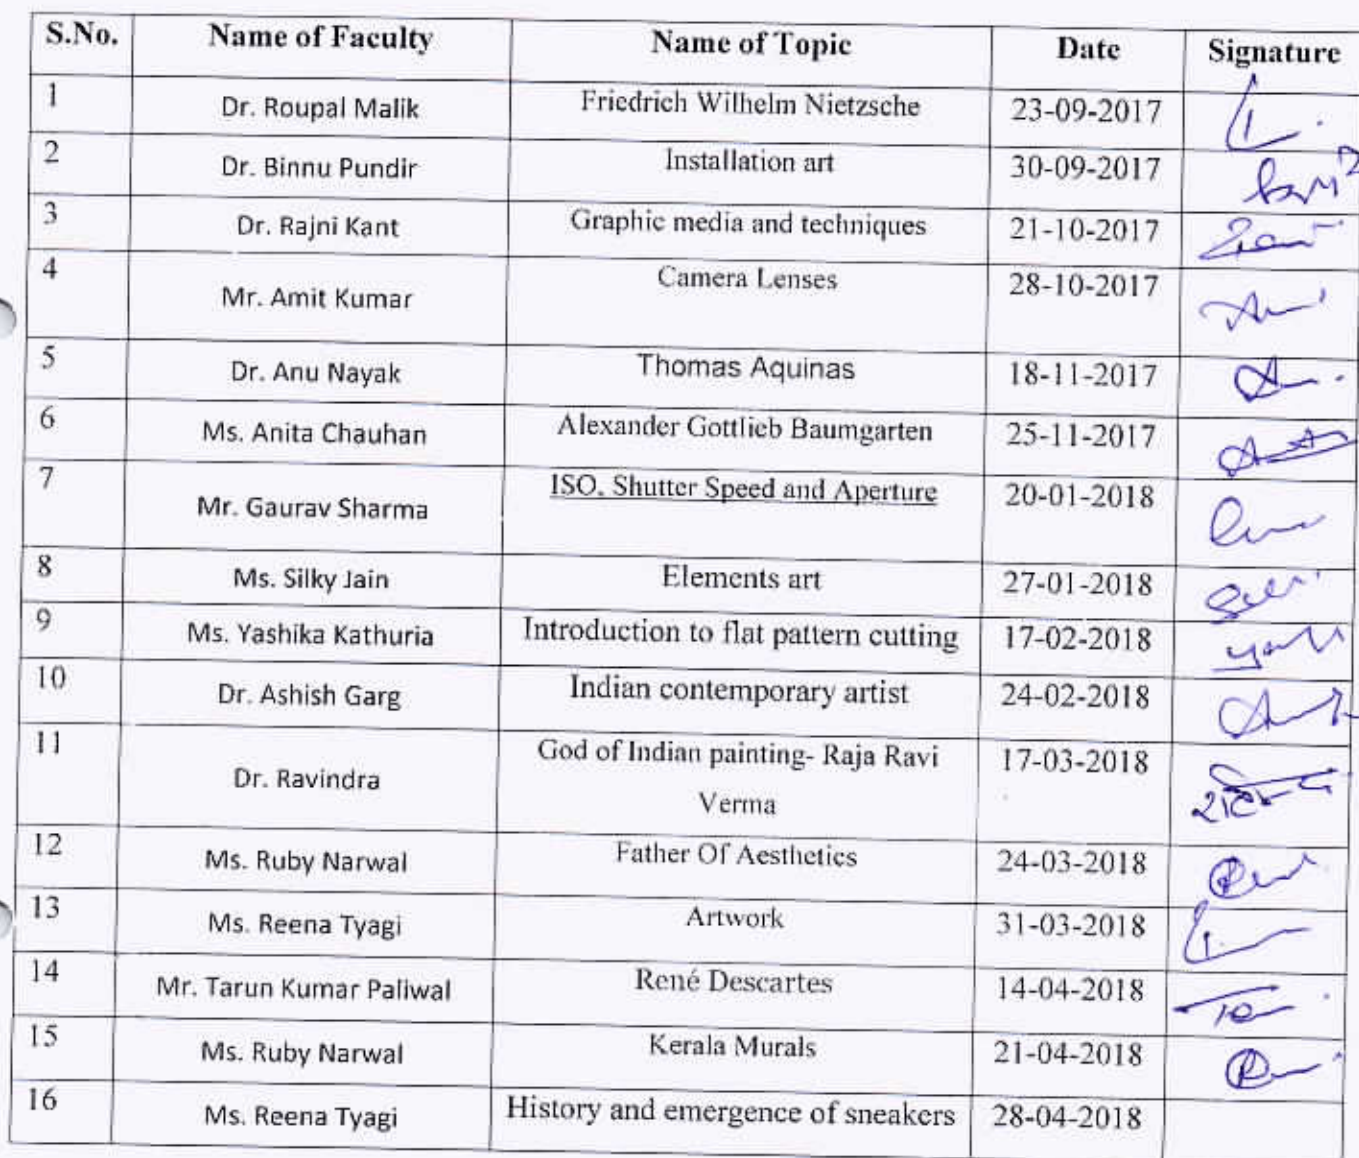 S.No. Name of Faculty Name of Topic Date Signature
1 Dr. Roupal Malik Friedrich Wilhelm Nietzsche 23-09-2017
2 Dr. Binnu Pundir Installation art 30-09-2017
3 Dr. Rajni Kant Graphic media and techniques 21-10-2017
4 Mr. Amit Kumar Camera Lenses 28-10-2017
5 Dr. Anu Nayak Thomas Aquinas 18-11-2017
6 Ms. Anita Chauhan Alexander Gottlieb Baumgarten 25-11-2017
7 Mr. Gaurav Sharma ISO, Shutter Speed and Aperture 20-01-2018
8 Ms. Silky Jain Elements art 27-01-2018
9 Ms. Yashika Kathuria Introduction to flat pattern cutting 17-02-2018
10 Dr. Ashish Garg Indian contemporary artist 24-02-2018
11 Dr. Ravindra God of Indian painting- Raja Ravi 17-03-2018
Verma
12 Ms. Ruby Narwal Father Of Aesthetics 24-03-2018
13 Ms. Reena Tyagi Artwork 31-03-2018
14 Mr. Tarun Kumar Paliwal René Descartes 14-04-2018
15 Ms. Ruby Narwal Kerala Murals 21-04-2018
16 Ms. Reena Tyagi History and emergence of sneakers 28-04-2018